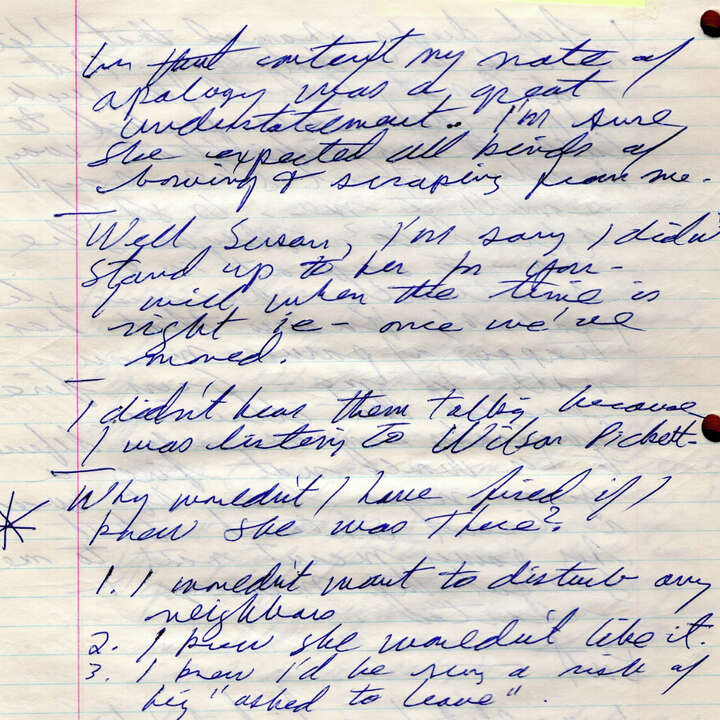 In that context my note of
apology was a great
understatement. I'm sure
she expected all kinds of
bowing & scraping from me.
Well Susan, I'm sorry I didn't
stand up to her for you -
I will when the time is
right ie - once we've
moved.
I didn't hear them talking because
I was listening to Wilson Pickett -
Why wouldn't I have fired if I
knew she was there?
1. I wouldn't want to disturb any
neighbors
2. I knew she wouldn't like it.
3. I knew I'd be a risk of
"asked to leave".